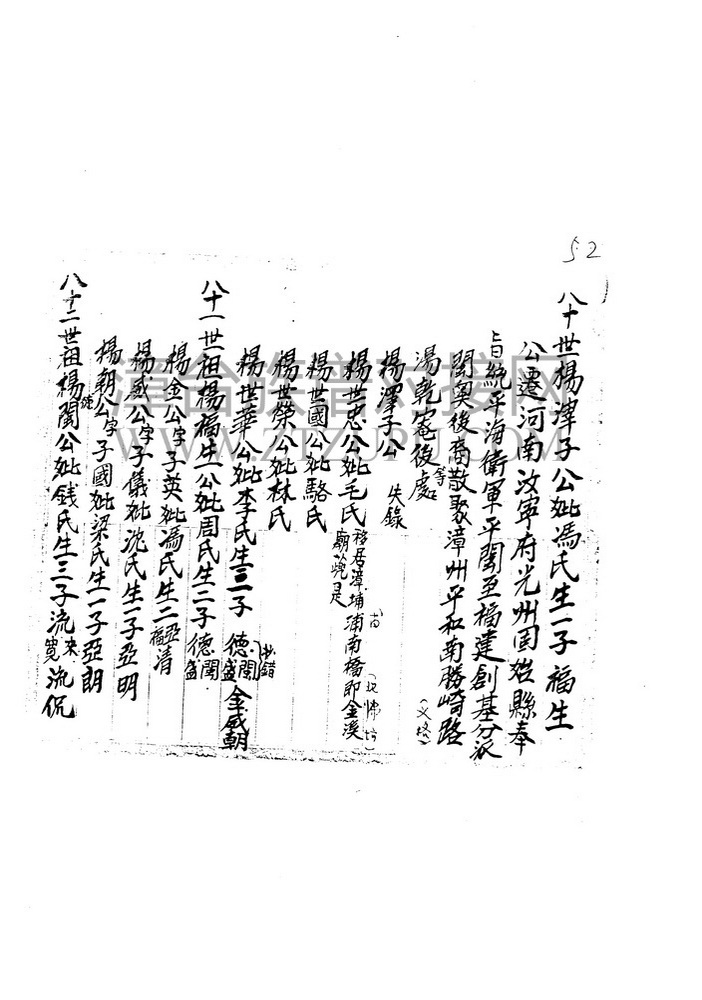 52
八十世楊淂子公妣馮氏生一子福生
公遷河南汝寧府光州固始縣奉
旨統平海衛軍平閩至福建創基分派
閩奧後裔散聚漳州平和南勝崎路
湯乾菴後處等
楊淂子公 失錄
楊世忠公妣毛氏 移居漳埔浦南橋即金溪
廟 是
楊世國公妣駱氏
楊世榮公妣林氏
楊世華公妣李氏生三子 德閩 德盛 金威朝
抄錯
八十一世祖楊福生公妣周氏生二子 德閩 德盛
楊金公字子英妣馮氏生二 亞福 亞清
楊威公字子儀妣沈氏生一子亞明
楊朝公字子國妣梁氏生一子亞朗
八十二世祖楊閩公妣錢氏生三子流來 寬 流侃
漳台族谱对接网
WWW.ZTZUPU.COM